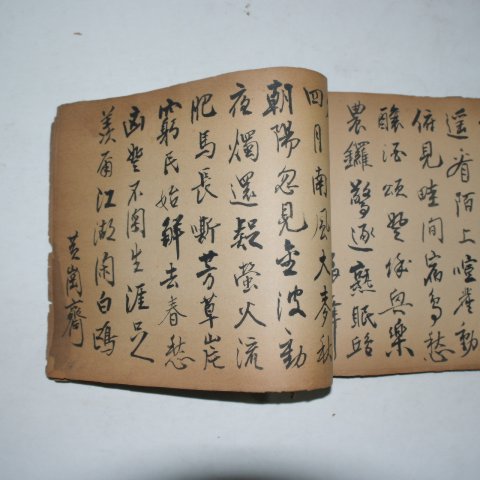 遥看陌上喧動
俯見畦間病鸟愁
釀酒頌豐與樂
農鑼驚逐眠
四月南風大麥秋
朝陽忽見金波動
夜燭還疑螢火流
肥馬長嘶芳草岸
窮民始解去春愁
凶豐不関生涯足
羨爾江湖闲白鷗
黃崗齋